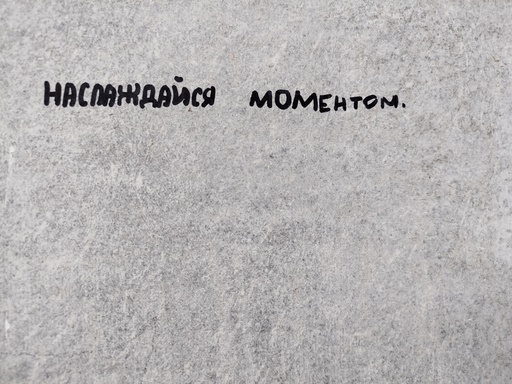 НАСЛАЖДАЙСЯ МОМЕНТОМ.